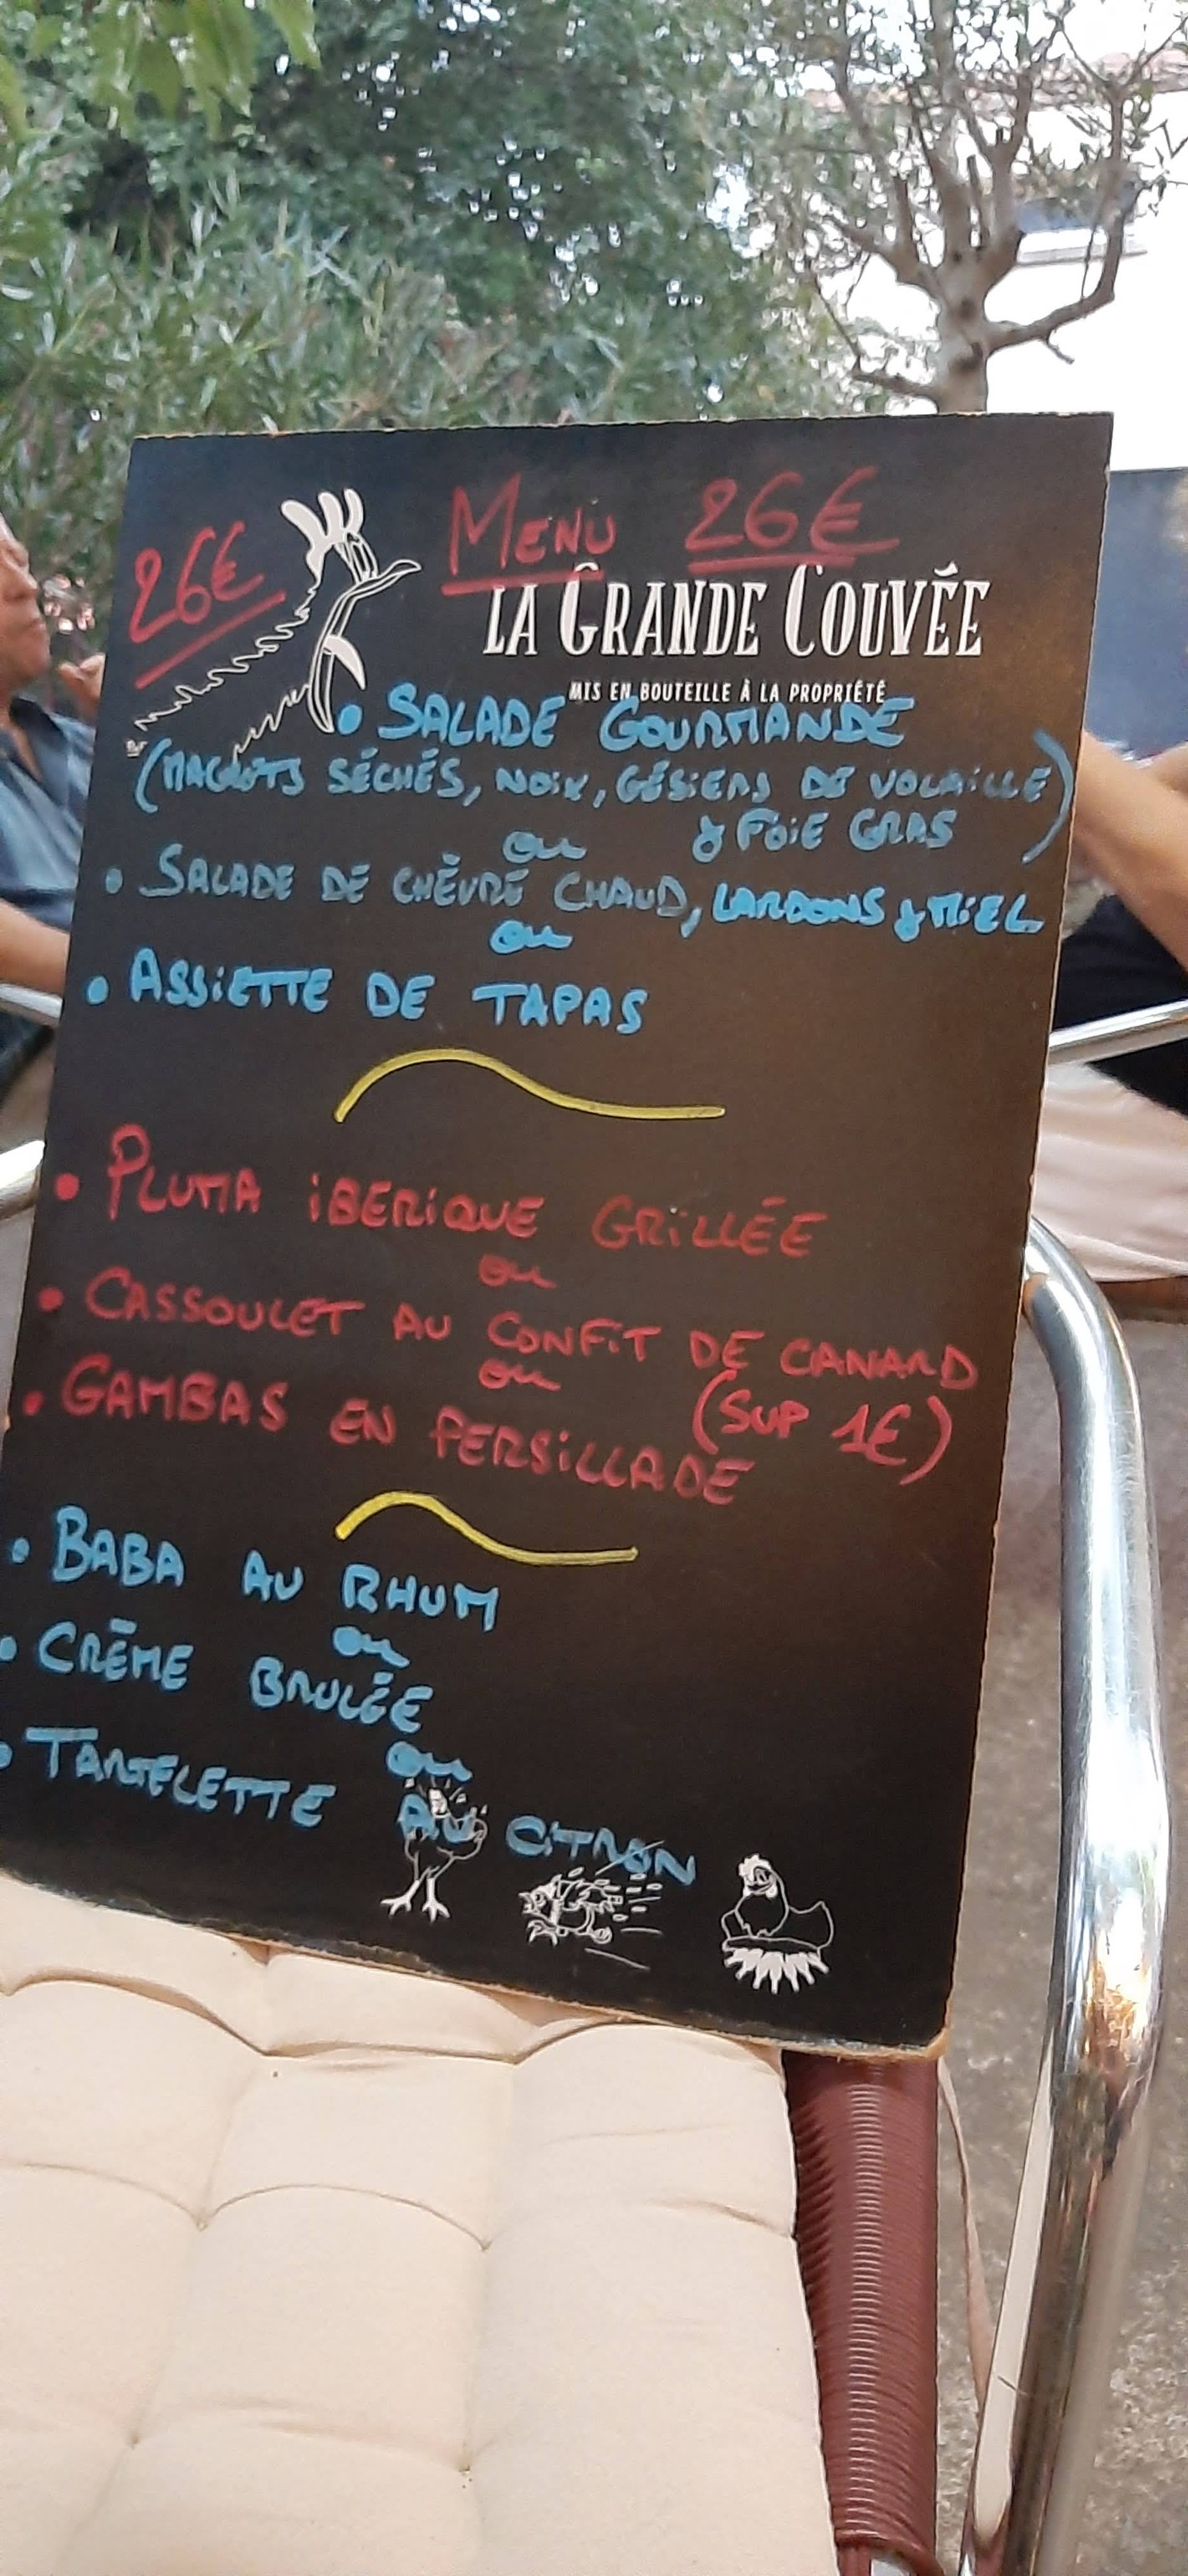 26€
MENU 26€
LA GRANDE COUVÉE
MIS EN BOUTEILLE À LA PROPRIÉTÉ
• SALADE GOURMANDE
(MAGRETS SÉCHÉS, NOIX, GÉSIERS DE VOLAILLE
& FOIE GRAS)
ou
• SALADE DE CHÈVRE CHAUD, LARDONS & MIEL
ou
• ASSIETTE DE TAPAS
• PLUMA IBERIQUE GRILLÉE
ou
• CASSOULET AU CONFIT DE CANARD
(SUP 1€)
ou
• GAMBAS EN PERSILLADE
• BABA AU RHUM
ou
• CRÈME BRULÉE
ou
• TARTELETTE AU CITRON